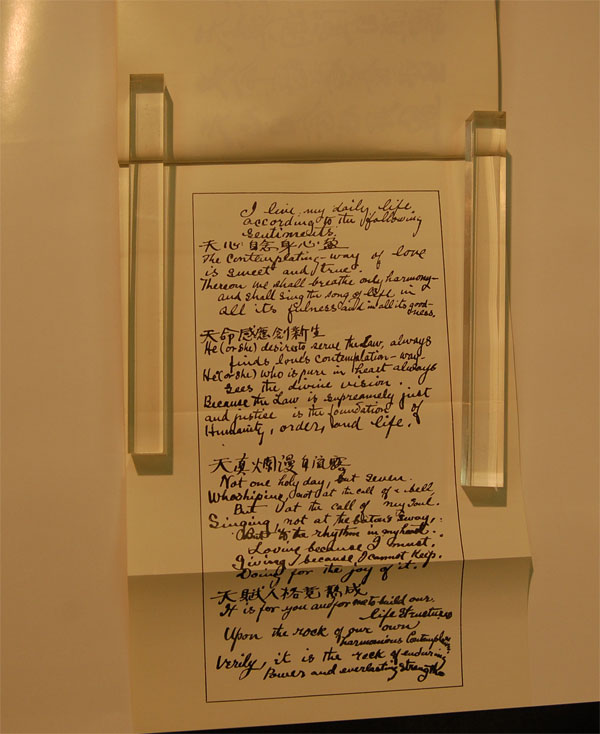 I live, my daily life
according to the following
Sentiments.
天心自密身心靈
The Contemplating-way of love
is sweet and true.
Thereon we shall breathe only harmony-
and shall sing the song of life in
all its fulness and in all its good-
ness.
天命感應創新生
He (or she) desires to serve the Law, always
finds love's contemplation-way.
He (or she) who is pure in heart always
sees the divine vision.
Because the Law is supremely just
and justice is the foundation of
Humanity, order, and life.
天真爛漫自流露
Not one holy day, but seven.
Whoshiping, not at the call of a bell,
But at the call of my soul.
Singing, not at the Baton's sway,
But to the rhythm in my heart.
Loving because I must.
Giving, because I cannot keep.
Doing for the joy of it.
天賦人格 成
It is for you and for me to build our
life structures
Upon the rock of our own
harmonious
Verily, it is the rock of enduring
Power and everlasting Strength